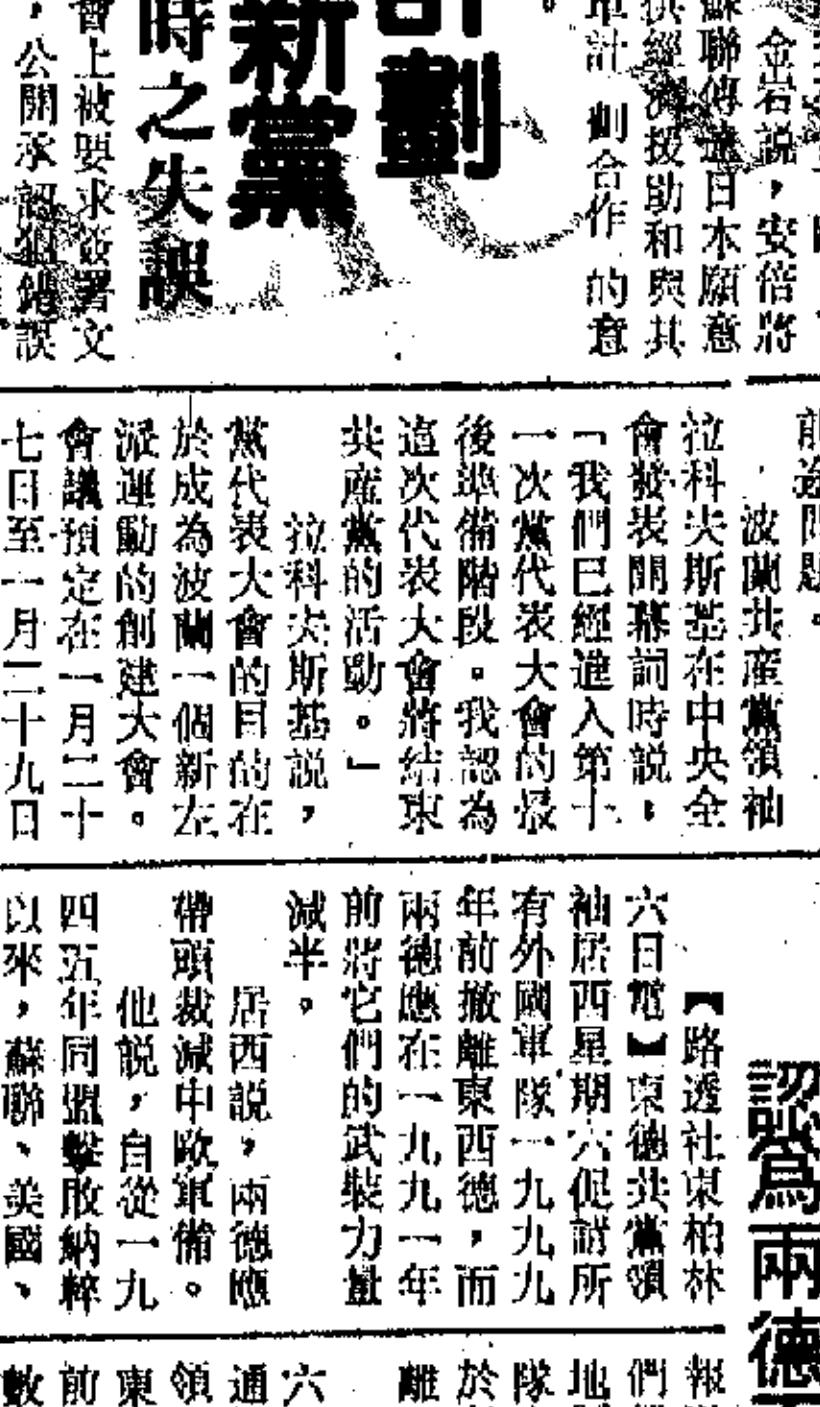 金岩説，安倍將
蘇聯傳達日本願意
供經濟援助和與其
計劃合作的意
劃
新黨
時之失誤
會上被要求簽署文
，公開承認犯錯誤
前途問題。
波蘭共産黨領袖
拉科夫斯基在中央全
會發表開幕詞時説：
「我們已經進入第十
一次黨代表大會的最
後準備階段。我認為
這次代表大會將結束
共産黨的活動。」
拉科夫斯基説，
黨代表大會的目的在
於成為波蘭一個新左
派運動的創建大會。
會議預定在一月二十
七日至一月二十九日
認爲兩德
【路透社東柏林
六日電】東德共黨領
袖居西星期六促請所
有外國軍隊一九九九
年前撤離東西德，而
兩德應在一九九一年
前將它們的武裝力量
減半。
居西説，兩德應
帶頭裁減中歐軍備。
他説，自從一九
四五年同盟擊敗納粹
以來，蘇聯、美國、
報
們
地
隊
於
離
六
通
領
東
前
數